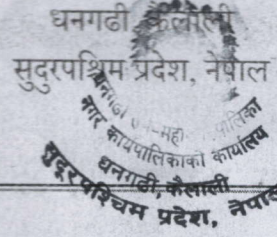 धनगढी, कैलाली
सुदुरपश्चिम प्रदेश, नेपाल
धनगढी उप-महा पालिका
नगर कार्यपालिकाको कार्यालय
धनगढी, कैलाली
सुदूरपश्चिम प्रदेश, नेपाल